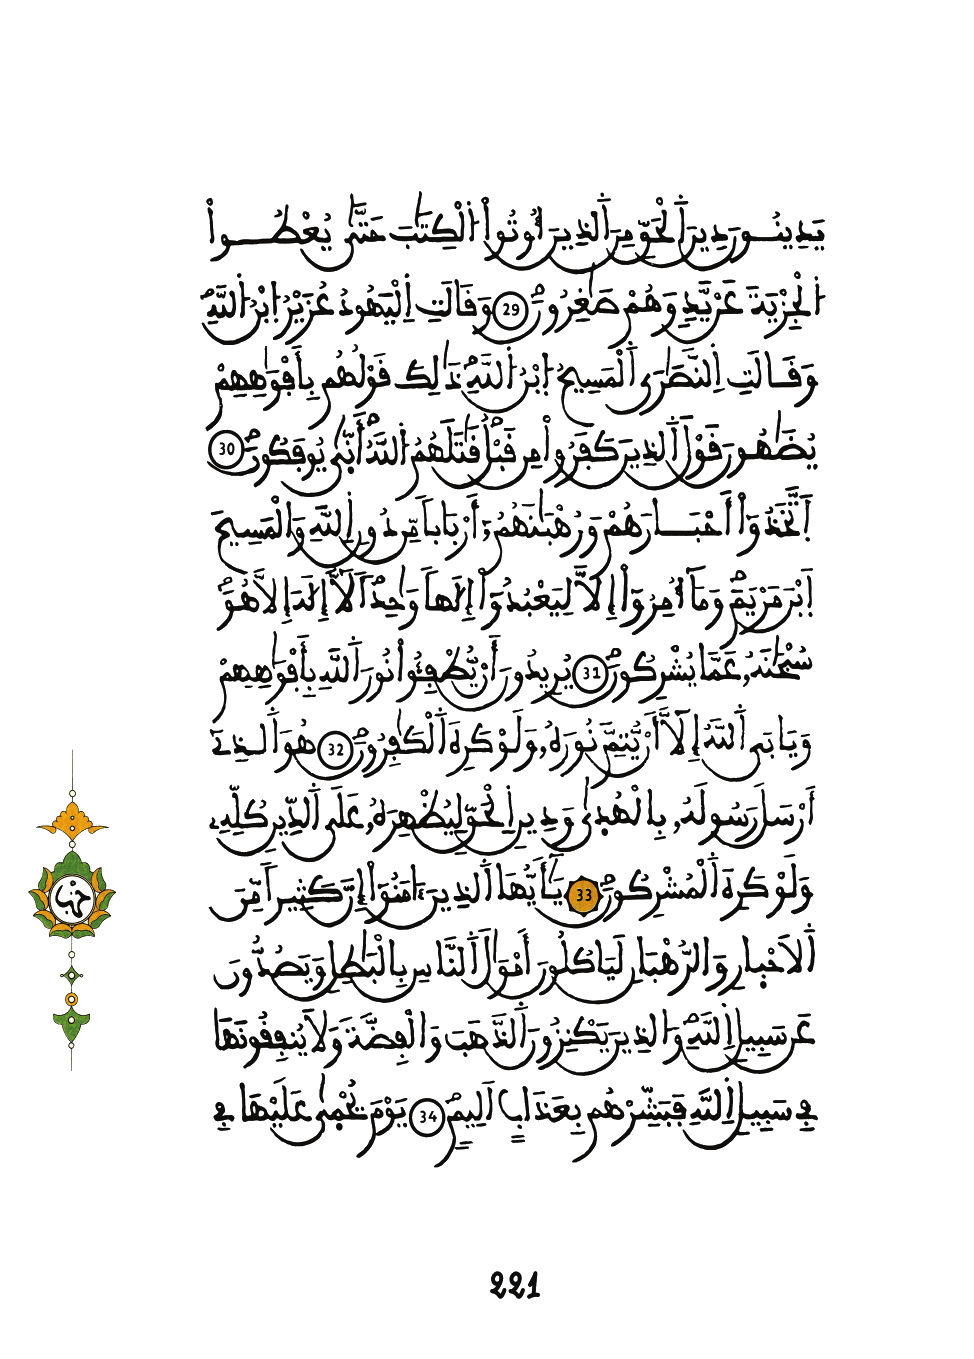 يَدِينُونَ دِينَ اَ۬لْحَقِّ مِنَ اَ۬لذِينَ أُوتُواْ اُ۬لْكِتَٰبَ حَتَّىٰ يُعْطُواْ
اُ۬لْجِزْيَةَ عَنْ يَّدٍ وَهُمْ صَٰغِرُونَۖ 29 وَقَالَتِ اِ۬لْيَهُودُ عُزَيْرُ اُ۪بْنُ اُ۬للَّهِۖ
وَقَالَتِ اِ۬لنَّصَٰرَى اَ۬لْمَسِيحُ اُ۪بْنُ اُ۬للَّهِۖ ذَٰلِكَ قَوْلُهُم بِأَفْوَٰهِهِمْ
يُضَٰهُونَ قَوْلَ اَ۬لذِينَ كَفَرُواْ مِن قَبْلُۖ قَٰتَلَهُمُ اُ۬للَّهُۖ أَنّ۪ىٰ يُوفَكُونَۖ 30
اَ۪تَّخَذُوٓاْ أَحْبَارَهُمْ وَرُهْبَٰنَهُمُۥٓ أَرْبَاباٗ مِّن دُونِ اِ۬للَّهِ وَالْمَسِيحَ
اَ۪بْنَ مَرْيَمَۖ وَمَآ أُمِرُوٓاْ إِلَّا لِيَعْبُدُوٓاْ إِلَٰهاٗ وَٰحِداٗۖ لَّآ إِلَٰهَ إِلَّا هُوَۖ
سُبْحَٰنَهُۥ عَمَّا يُشْرِكُونَۖ 31 يُرِيدُونَ أَنْ يُّطْفِـُٔواْ نُورَ اَ۬للَّهِ بِأَفْوَٰهِهِمْ
وَيَابَى اَ۬للَّهُ إِلَّآ أَنْ يُّتِمَّ نُورَهُۥ وَلَوْ كَرِهَ اَ۬لْكَٰفِرُونَۖ 32 هُوَ اَ۬لذِےٓ
أَرْسَلَ رَسُولَهُۥ بِالْهُد۪ىٰ وَدِينِ اِ۬لْحَقِّ لِيُظْهِرَهُۥ عَلَى اَ۬لدِّينِ كُلِّهِۦ
وَلَوْ كَرِهَ اَ۬لْمُشْرِكُونَۖ 33 يَٰٓأَيُّهَا اَ۬لذِينَ ءَامَنُوٓاْ إِنَّ كَثِيراٗ مِّنَ
اَ۬لْأَحْب۪ارِ وَالرُّهْبَانِ لَيَاكُلُونَ أَمْوَٰلَ اَ۬لنَّاسِ بِالْبَٰطِلِ وَيَصُدُّونَ
عَن سَبِيلِ اِ۬للَّهِۖ وَالذِينَ يَكْنِزُونَ اَ۬لذَّهَبَ وَالْفِضَّةَ وَلَا يُنفِقُونَهَا
فِے سَبِيلِ اِ۬للَّهِ فَبَشِّرْهُم بِعَذَابٍ اَلِيمٖۖ 34 يَوْمَ يُحْم۪ىٰ عَلَيْهَا فِے
حزب
221